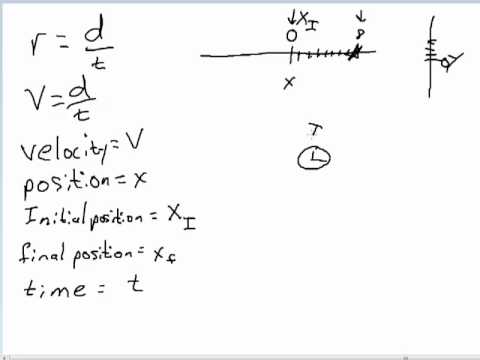 r = d/t
V = d/t
velocity = V
position = x
Initial position = X_I
final position = x_f
time = t
X_I
O 8
x
T
y